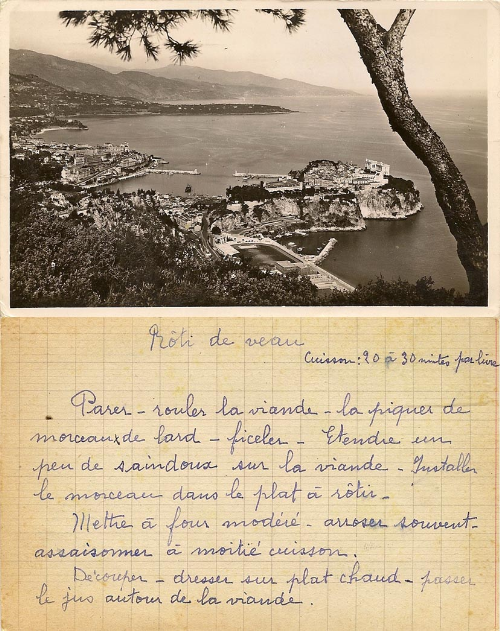 Rôti de veau
Cuisson : 20 à 30 minutes par livre
Parer - rouler la viande - la piquer de
morceaux de lard - ficeler - Etendre un
peu de saindoux sur la viande - Installer
le morceau dans le plat à rôtir -
Mettre à four modéré - arroser souvent -
assaisonner à moitié cuisson.
Découper - dresser sur plat chaud - passer
le jus autour de la viande.